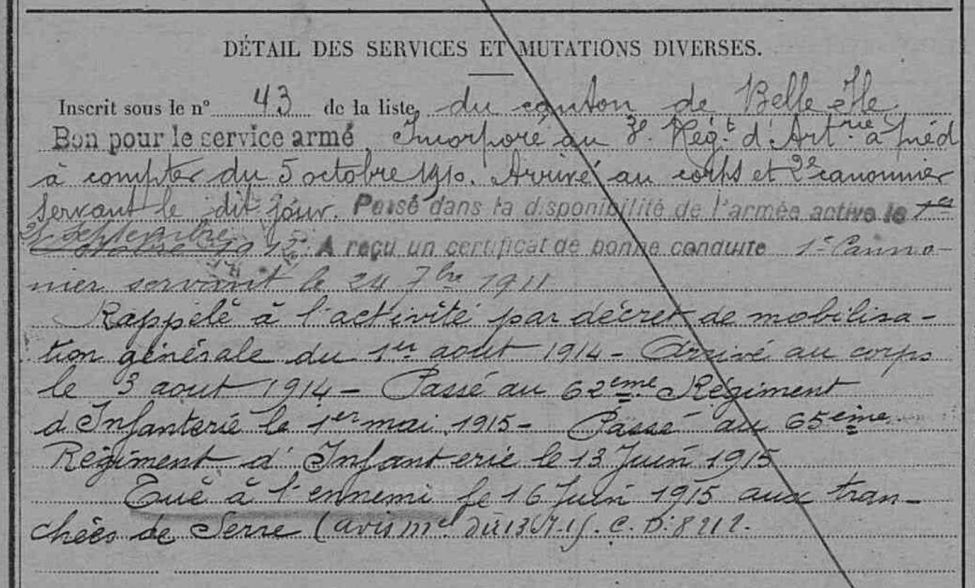 DÉTAIL DES SERVICES ET MUTATIONS DIVERSES.
Inscrit sous le n° 43 de la liste du canton de Belle Ile
Bon pour le service armé. Incorporé au 3e Régt d'Artrie à pied
à compter du 5 octobre 1910. Arrivé au corps et 2e canonnier
servant le dit jour. Passé dans la disponibilité de l'armée active le 1er
septembre 1912. A reçu un certificat de bonne conduite 1e Canno-
nier servant le 24 7bre 1911
Rappelé à l'activité par décret de mobilisa-
tion générale du 1er aout 1914 - Arrivé au corps
le 3 aout 1914 - Passé au 62eme Régiment
d'Infanterie le 1er mai 1915 - Passé au 65eime
Régiment d'Infanterie le 13 Juin 1915
Tué à l'ennemi le 16 Juin 1915 aux tran-
chées de Serre (avis mel du 13.7.15. C. D. 8212.